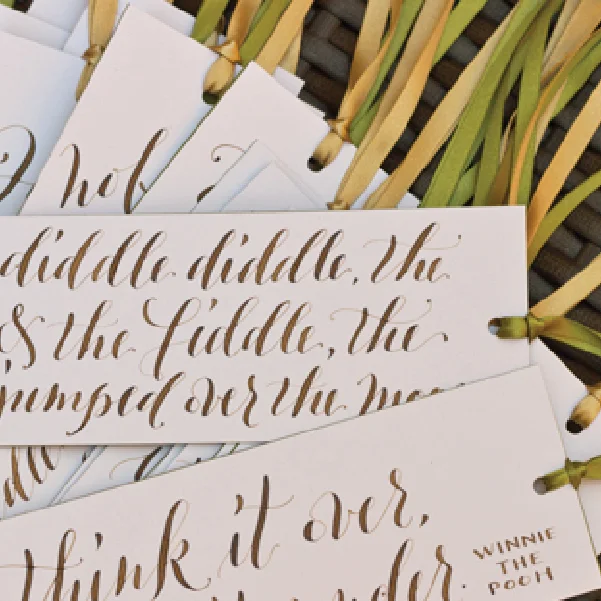 hob
diddle diddle, the
& the fiddle, the
jumped over the moo
think it over,
under.
WINNIE
THE
POOH